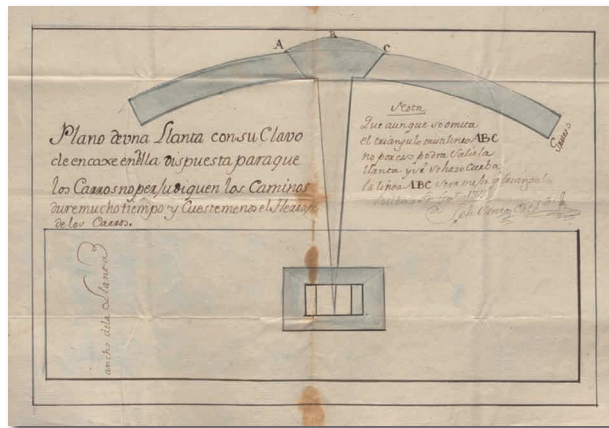 A
B
C
Plano de vna Llanta con su Clavo
de encaxe en ella dispuesta para que
los Carros no perjudiquen los Caminos
dure mucho tiempo y Cueste menos el Herraje
de los Carros.
Nota
Que aunque se omita
el triangulo mistilineo ABC
no por eso podra salir la
Llanta y si se haze curba
la linea ABC sera mejor q.
Grueso
ancho de la Llanta